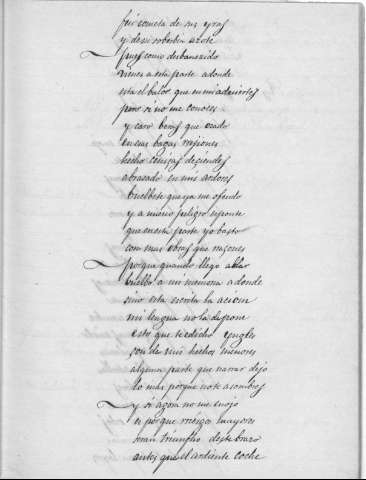 fui cometa de sus yras
y de su soberbia azote
Pues como desbanecido
vienes a esta parte adonde
esta el balor que en mi adviertes
pero si no me conoces
y caro beras que osado
en esas bagas rejiones
hecho cenisas deciendes
abrasado en mis ardores
buelbete que ya me ofendo
y a nuevo peligro esponte
que en esta parte yo basto
con mas obras que razones
porque quando llego ablar
buelbo a mi memoria adonde
sino esta escrita la acion
mi lengua no la dispone
esto que te e dicho yngles
son de mis hechos menores
alguna parte que narrar dejo
lo mas porque no te asombres
y si agora no me enojo
es porque mejor mayores
seran triunfo deste brazo
antes que el ardiente coche